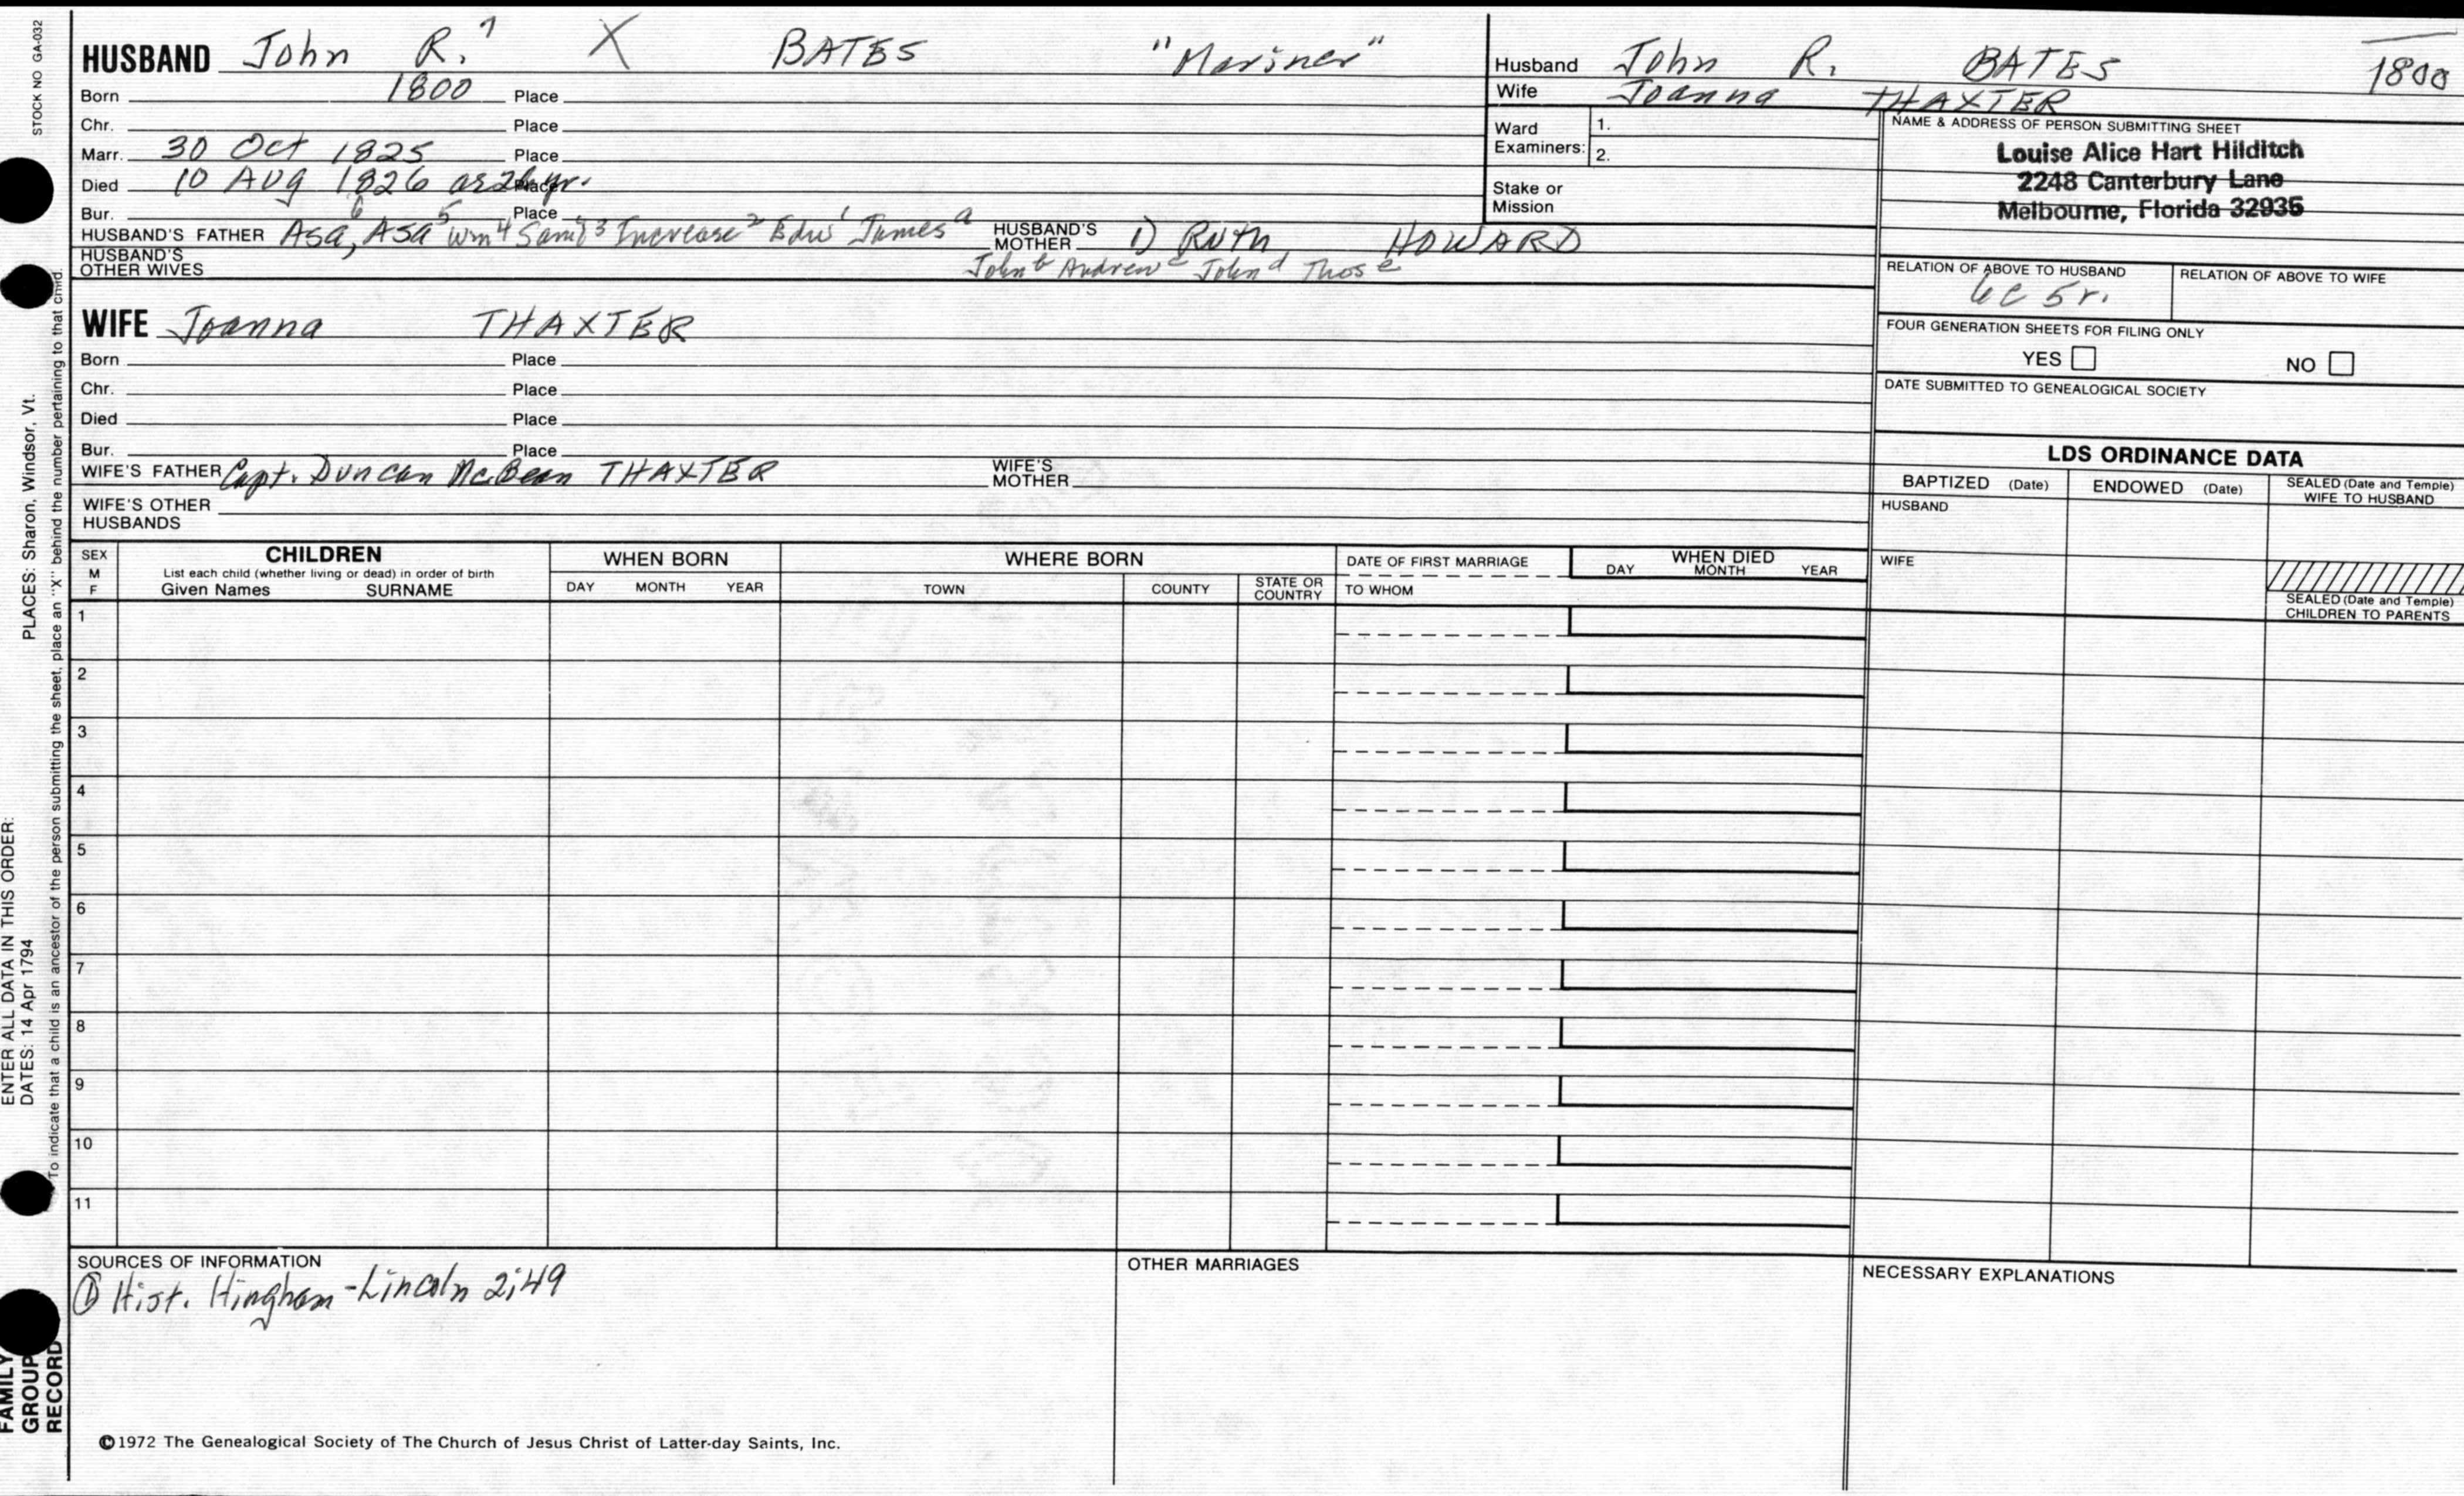 STOCK NO GA-032
PLACES: Sharon, Windsor, Vt.
ENTER ALL DATA IN THIS ORDER:
DATES: 14 Apr 1794
To indicate that a child is an ancestor of the person submitting the sheet, place an "X" behind the number pertaining to that child.
FAMILY GROUP RECORD
HUSBAND John R.7 X BATES "Mariner"
Born 1800 Place
Chr. Place
Marr. 30 Oct 1825 Place
Died 10 Aug 1826 as 26 yr. Place
Bur. Place
HUSBAND'S FATHER Asa6, Asa5 Wm4 Saml3 Increase2 Edw1 Jamesa HUSBAND'S MOTHER 1) Ruth HOWARD
HUSBAND'S OTHER WIVES Johnb Andrewc Johnd Those
WIFE Joanna THAXTER
Born Place
Chr. Place
Died Place
Bur. Place
WIFE'S FATHER Capt. Duncan McBean THAXTER WIFE'S MOTHER
WIFE'S OTHER HUSBANDS
Husband John R. BATES 1800
Wife Joanna THAXTER
Ward Examiners: 1.
2.
Stake or Mission
NAME & ADDRESS OF PERSON SUBMITTING SHEET
Louise Alice Hart Hilditch
2248 Canterbury Lane
Melbourne, Florida 32935
RELATION OF ABOVE TO HUSBAND RELATION OF ABOVE TO WIFE
6C 5r.
FOUR GENERATION SHEETS FOR FILING ONLY
YES NO
DATE SUBMITTED TO GENEALOGICAL SOCIETY
LDS ORDINANCE DATA
BAPTIZED (Date) ENDOWED (Date) SEALED (Date and Temple) WIFE TO HUSBAND
HUSBAND
WIFE
SEALED (Date and Temple) CHILDREN TO PARENTS
SEX M F CHILDREN WHEN BORN WHERE BORN DATE OF FIRST MARRIAGE WHEN DIED
List each child (whether living or dead) in order of birth
Given Names SURNAME DAY MONTH YEAR TOWN COUNTY STATE OR COUNTRY TO WHOM DAY MONTH YEAR
1
2
3
4
5
6
7
8
9
10
11
SOURCES OF INFORMATION
① Hist. Hingham - Lincoln 2;49
OTHER MARRIAGES
NECESSARY EXPLANATIONS
©1972 The Genealogical Society of The Church of Jesus Christ of Latter-day Saints, Inc.